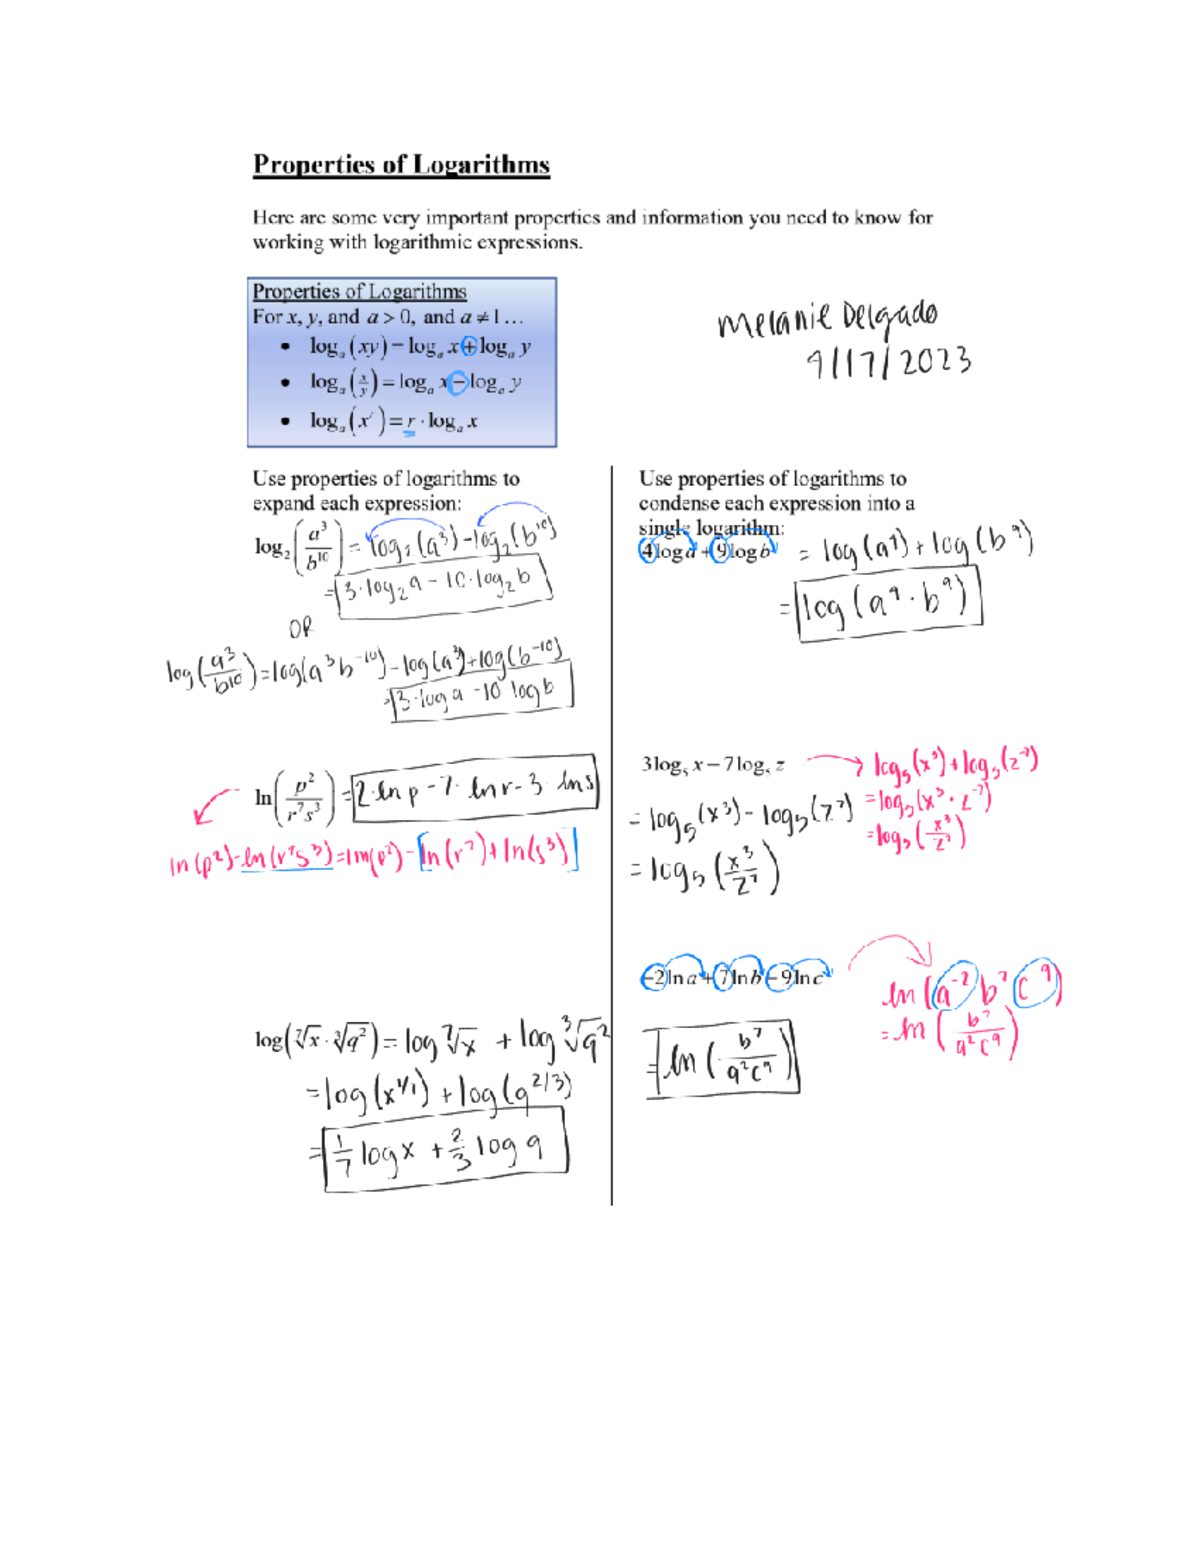 Properties of Logarithms
Here are some very important properties and information you need to know for
working with logarithmic expressions.
Properties of Logarithms
For x, y, and a > 0, and a ≠ 1…
• logₐ(xy) = logₐ x + logₐ y
• logₐ(x/y) = logₐ x − logₐ y
• logₐ(xʳ) = r · logₐ x
Melanie Delgado
9/17/2023
Use properties of logarithms to
expand each expression:
log₂(a³/b¹⁰) = log₂(a³) - log₂(b¹⁰)
= 3·log₂a - 10·log₂b
OR
log(a³/b¹⁰) = log(a³b⁻¹⁰) = log(a³) + log(b⁻¹⁰)
= 3·log a - 10 log b
ln(p²/r⁷s³) = 2·ln p - 7·ln r - 3·ln s
ln(p²) - ln(r⁷s³) = ln(p²) - [ln(r⁷) + ln(s³)]
log(⁷√x · ³√q²) = log ⁷√x + log ³√q²
= log(x^1/7) + log(q^2/3)
= 1/7 log x + 2/3 log q
Use properties of logarithms to
condense each expression into a
single logarithm:
4log a + 9log b = log(a⁴) + log(b⁹)
= log(a⁴ · b⁹)
3log₅ x − 7log₅ z → log₅(x³) + log₅(z⁻⁷)
= log₅(x³) - log₅(z⁷)
= log₅(x³/z⁷)
= log₅(x³ · z⁻⁷)
= log₅(x³/z⁷)
−2ln a + 7ln b − 9ln c
= ln(b⁷/a²c⁹)
ln(a⁻² b⁷ c⁻⁹)
= ln(b⁷/a²c⁹)